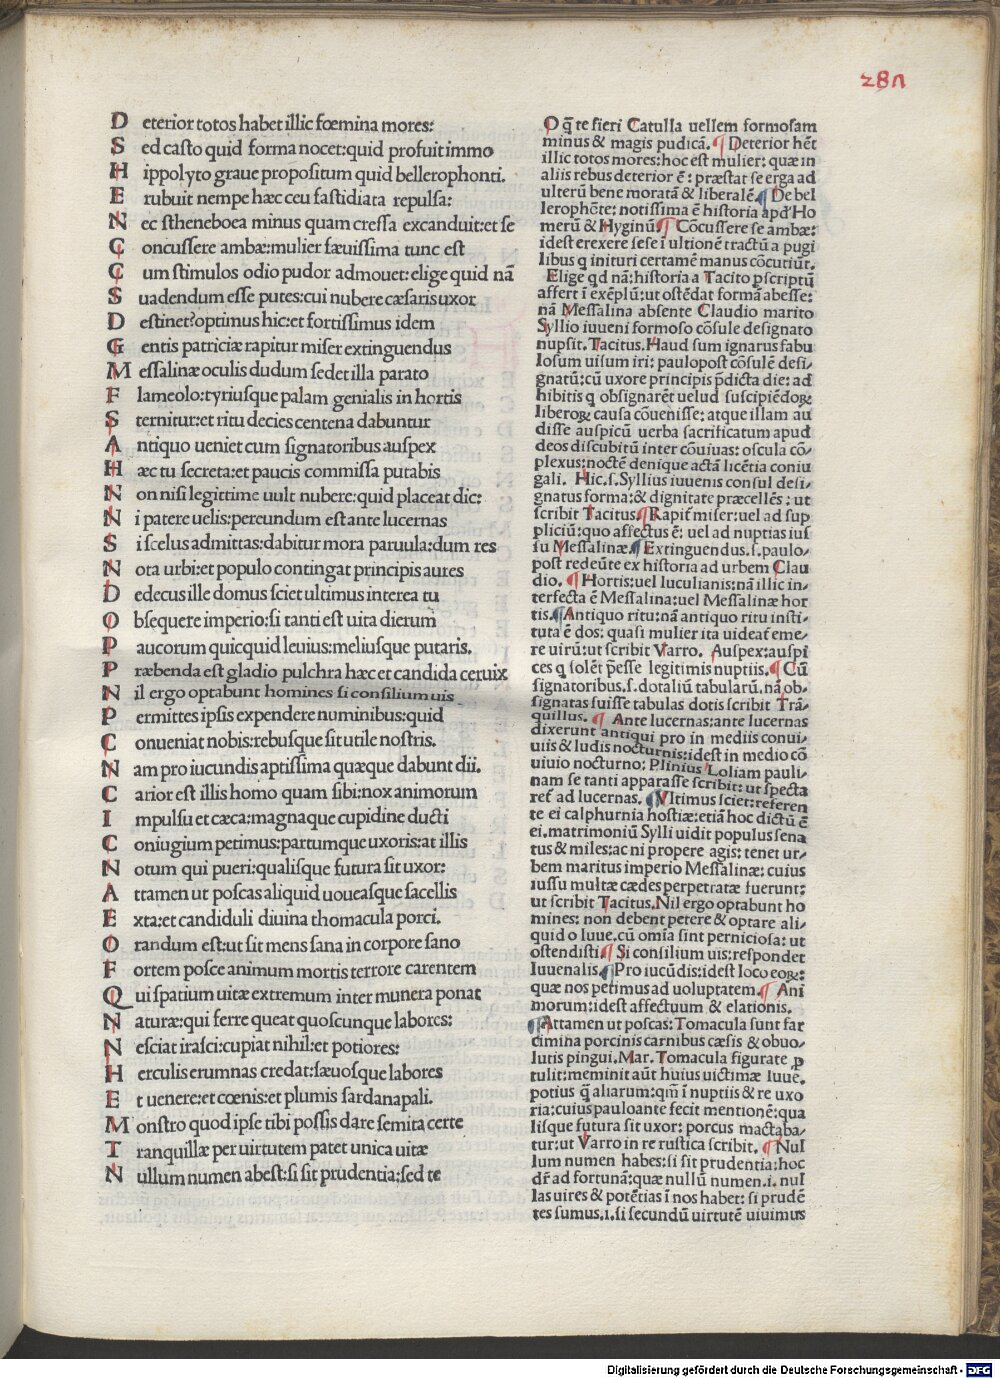 28n
D eterior totos habet illic fœmina mores:
S ed casto quid forma nocet:quid profuit immo
H ippolyto graue propositum quid bellerophonti.
E rubuit nempe hæc ceu fastidiata repulsa:
N ec stheneboea minus quam cressa excanduit:et se
C oncussere ambæ:mulier sæuissima tunc est
C um stimulos odio pudor admouet:elige quid nā
S uadendum esse putes:cui nubere cæsaris uxor
D estinet?optimus hic:et fortissimus idem
G entis patriciæ rapitur miser extinguendus
M essalinæ oculis dudum sedet illa parato
F lameolo:tyriusque palam genialis in hortis
S ternitur:et ritu decies centena dabuntur
A ntiquo ueniet cum signatoribus auspex
H æc tu secreta:et paucis commissa putabis
N on nisi legittime uult nubere:quid placeat dic:
N i patere uelis:pereundum est ante lucernas
S i scelus admittas:dabitur mora paruula:dum res
N ota urbi:et populo contingat principis aures
D edecus ille domus sciet ultimus interea tu
O bsequere imperio:si tanti est uita dierum
P aucorum quicquid leuius:meliusque putaris.
P ræbenda est gladio pulchra hæc et candida ceruix
N il ergo optabunt homines si consilium uis
P ermittes ipsis expendere numinibus:quid
C onueniat nobis:rebusque sit utile nostris.
N am pro iucundis aptissima quæque dabunt dii.
C arior est illis homo quam sibi:nox animorum
I mpulsu et cæca:magnaque cupidine ducti
C oniugium petimus:partumque uxoris:at illis
N otum qui pueri:qualisque futura sit uxor:
A ttamen ut poscas aliquid uoueasque sacellis
E xta:et candiduli diuina thomacula porci.
O randum est:ut sit mens sana in corpore sano
F ortem posce animum mortis terrore carentem
Q ui spatium uitæ extremum inter munera ponat
N aturæ:qui ferre queat quoscunque labores:
N esciat irasci:cupiat nihil:et potiores:
H erculis erumnas credat:sæuosque labores
E t uenere:et cœnis:et plumis sardanapali.
M onstro quod ipse tibi possis dare semita certe
T ranquillæ per uirtutem patet unica uitæ
N ullum numen abest:si sit prudentia:sed te
O q̄ te fieri Catulla uellem formosam
minus & magis pudicā. ¶ Deterior hēt
illic totos mores:hoc est mulier: quæ in
aliis rebus deterior ē: præstat se erga ad
ulterū bene moratā & liberalē ¶ De bel
lerophēte: notissima ē historia apd' Ho
merū & Hyginū. ¶ Cōcussere se ambæ:
idest erexere sese ī ultionē tractū a pugi
libus q inituri certamē manus cōcutiūt.
Elige qd nā: historia a Tacito pscriptū
affert ī exēplū:ut ostēdat formā abesse:
nā Messalina absente Claudio marito
Syllio iuueni formoso cōsule designato
nupsit. Tacitus. Haud sum ignarus fabu
losum uisum iri: paulopost cōsulē desi/
gnatū:cū uxore principis p̄dicta die: ad
hibitis q obsignarēt uelud suscipiēdoꝝ
liberoꝝ causa cōuenisse: atque illam au
disse auspicū uerba sacrificatum apud
deos discubitū inter cōuiuas: oscula cō/
plexus:noctē denique actā licētia coniu
gali. Hic.s.Syllius iuuenis consul desi/
gnatus forma:& dignitate præcellēs : ut
scribit Tacitus. ¶ Rapit̄ miser:uel ad sup
pliciū: quo affectus ē: uel ad nuptias ius
su Messalinæ ¶ Extinguendus.s.paulo/
post redeūte ex historia ad urbem Clau
dio. ¶ Hortis:uel luculianis: nā illic in/
terfecta ē Messalina:uel Messalinæ hor
tis. ¶ Antiquo ritu: nā antiquo ritu insti/
tuta ē dos: quasi mulier ita uideat̄ eme/
re uirū:ut scribit Varro. Auspex:auspi
ces q solēt p̄esse legitimis nuptiis. ¶ Cū
signatoribus.s.dotaliū tabularū.nā ob/
signatas fuisse tabulas dotis scribit Trā/
quillus. ¶ Ante lucernas:ante lucernas
dixerunt antiqui pro in mediis conui/
uiis & ludis nocturnis:idest in medio cō
uiuio nocturno: Plinius Loliam pauli/
nam se tanti apparasse scribit: ut specta
ret̄ ad lucernas. ¶ Vltimus sciet:referen
te ei calphurnia hostiæ:etiā hoc dictū ē
ei.matrimoniū Sylli uidit populus sena
tus & miles:ac ni propere agis: tenet ur/
bem maritus imperio Messalinæ: cuius
iussu multæ cædes perpetratæ fuerunt:
ut scribit Tacitus.Nil ergo optabunt ho
mines: non debent petere & optare ali/
quid o Iuue.cū omīa sint perniciosa: ut
ostendisti ¶ Si consilium uis:respondet
Iuuenalis ¶ Pro iucūdis:idest loco eoꝝ:
quæ nos petimus ad uoluptatem. ¶ Ani
morum:idest affectuum & elationis.
¶ Attamen ut poscas:Tomacula sunt far
cimina porcinis carnibus cæsis & obuo/
lutis pingui. Mar. Tomacula figurate ꝑ
tulit:meminit aūt huius uictimæ Iuue.
potius q̄ aliarum:qm̄ ī nuptiis & re uxo
ria:cuius pauloante fecit mentionē:qua
lisque futura sit uxor: porcus mactaba/
tur:ut Varro in re rustica scribit. ¶ Nul
lum numen habes:si sit prudentia:hoc
dr̄ ad fortunā:quæ nullū numen.i. nul
las uires & potētias ī nos habet: si prudē
tes sumus.i.si secundū uirtutē uiuimus
Digitalisierung gefördert durch die Deutsche Forschungsgemeinschaft - DFG